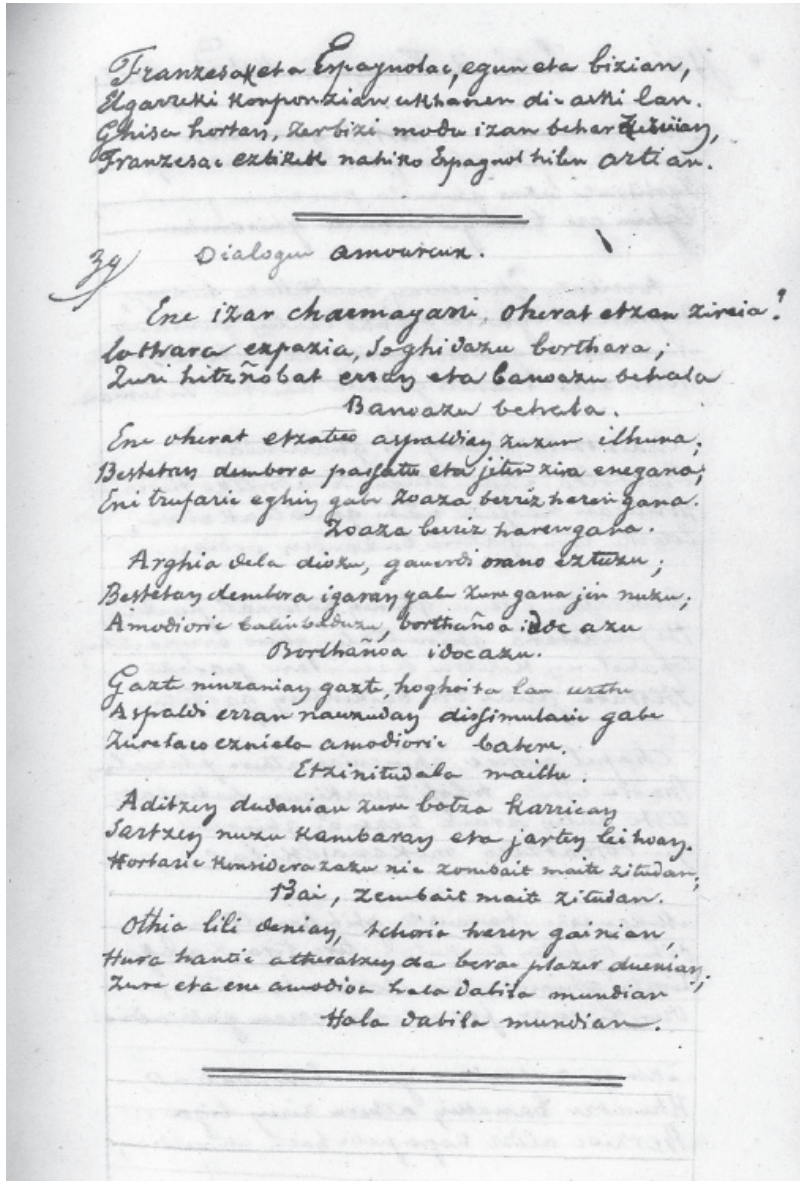 Franzesak eta Espagnolac, egun eta bizian,
Elgarreki konponzian ukhanen die aski lan.
Ghisa hortan, zerbizi modu izan behar
Franzesac eztirek nahiko Espagnol hilen artian.
39
Dialogue amoureux.
Ene izar charmagarri, oherat etzan zireia?
Lothara ezpazia, soghidazu borthara;
Zuri hitzñobat erran eta banoazu behala
Banoazu behala.
Ene oherat etzateo aspaldian zuzun ilhuna;
Bestetan dembora passatu eta jiten zira enegana;
Eni trufaric eghin gabe zoaza berriz haren gana.
Zoaza berriz haren gana.
Arghia dela diozu, gauerdi orano eztuzu;
Bestetan dembora igaran gabe zure gana jin nuzu;
Amodioric balinbaduzu, borthañoa idoc azu
Borthañoa idocazu.
Gazte ninzanian gazte, hoghoita lau urthe
Aspaldi erran nauzudan dissimulatic gabe
Zuretaco ezniela amodioric batere.
Etzinitudala maithe.
Aditzen dudanian zure botza karrican
Sartzen nuzu kambaran eta jarten leihoan.
Hortaric konsidera zazu nic zombait maite zitudan;
Bai, zembait maite zitudan.
Othia lili denian, tchoria haren gainian,
Hura hantic altxatzen da berac plazer duenian;
Zure eta ene amodioa hala dabila mundian
Hala dabila mundian.